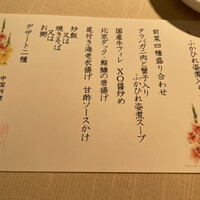 前菜四種盛り合わせ
タラバガニ肉と蟹子入り
ふかひれ姿煮スープ
国産牛フィレ XO醤炒め
北京ダック・鮫鰊の唐揚げ
尾付き海老衣揚げ 甘酢ソースかけ
炒飯
又は
焼きそば
又は
お粥
デザート二種
中国料理